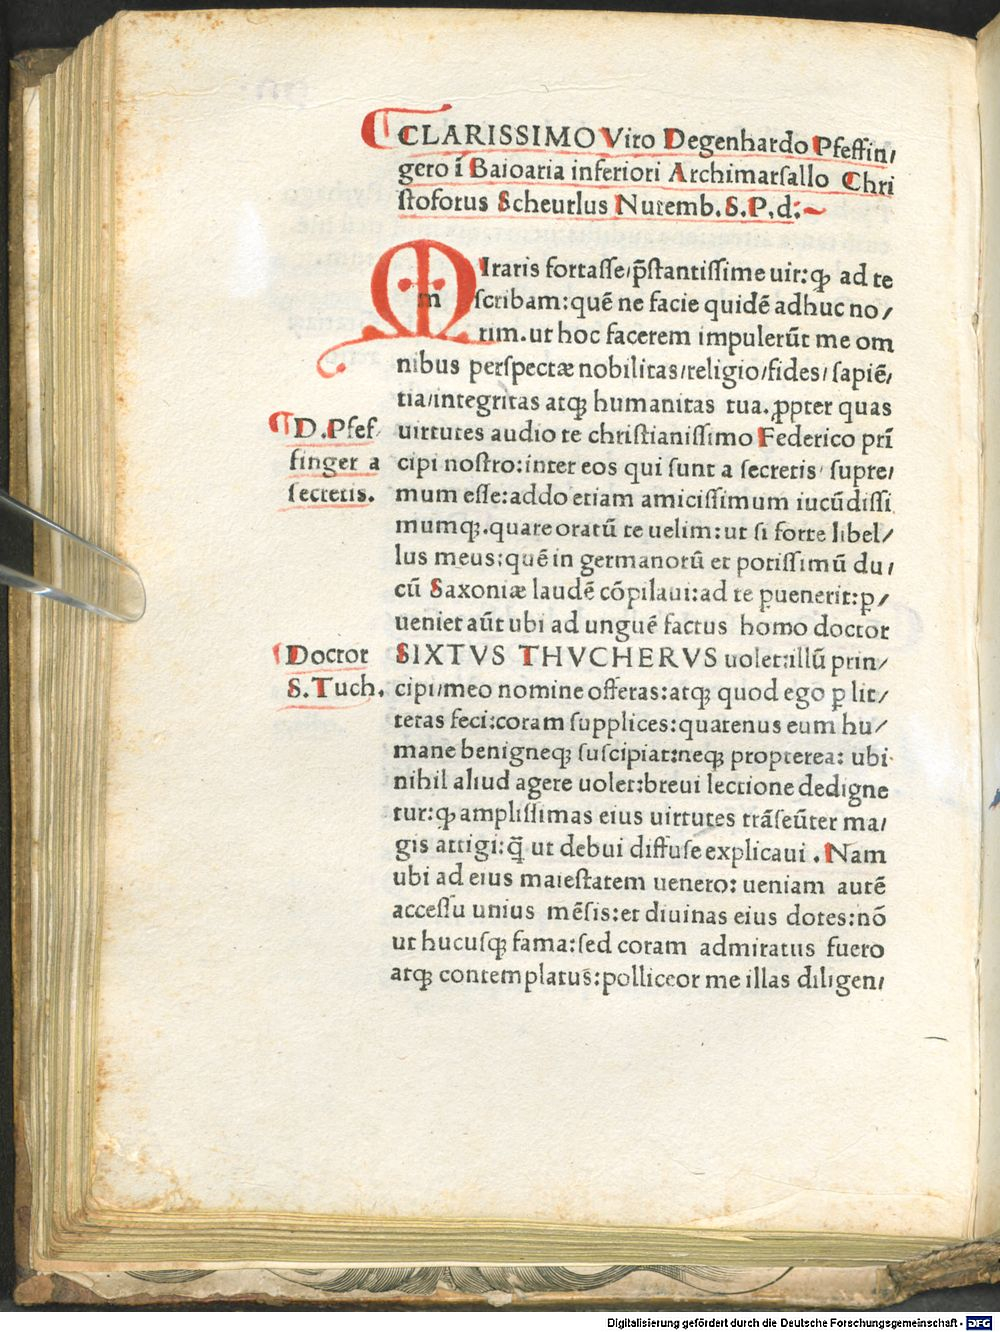 CLARISSIMO Viro Degenhardo Pfeffin/
gero ī Baioaria inferiori Archimarſallo Chri
ſtoforus Scheurlus Nuremb. S.P.d:~
MIraris fortaſſe/p̄ſtantiſſime uir:ꝙ ad te
ſcribam:quē ne facie quidē adhuc no/
rim.ut hoc facerem impulerūt me om
nibus perſpectæ nobilitas/religio/fides/ſapiē/
tia/integritas atqꝫ humanitas tua.ꝓpter quas
uirtutes audio te chriſtianiſſimo Federico prī
cipi noſtro:inter eos qui ſunt a ſecretis/ ſupre/
mum eſſe:addo etiam amiciſſimum iucūdiſſi
mumqꝫ.quare oratū te uelim:ut ſi forte libel/
lus meus:quē in germanorū et potiſſimū du/
cū Saxoniæ laudē cōpilaui:ad te puenerit:p/
ueniet aūt ubi ad unguē factus homo doctor
SIXTVS THVCHERVS uolet:illū prin/
cipi/meo nomine offeras:atqꝫ quod ego ꝑ lit/
teras feci:coram ſupplices:quatenus eum hu/
mane benigneqꝫ ſuſcipiat:neqꝫ propterea: ubi
nihil aliud agere uolet:breui lectione dedigne
tur:ꝙ ampliſſimas eius uirtutes trāſeūter ma/
gis attigi:q̄ ut debui diffuſe explicaui. Nam
ubi ad eius maieſtatem uenero: ueniam autē
acceſſu unius mēſis:et diuinas eius dotes:nō
ut hucuſqꝫ fama:ſed coram admiratus fuero
atqꝫ contemplatus:polliceor me illas diligen/
D.Pfef/
finger a
ſecretis.
Doctor
S.Tuch.
Digitalisierung gefördert durch die Deutsche Forschungsgemeinschaft - DFG